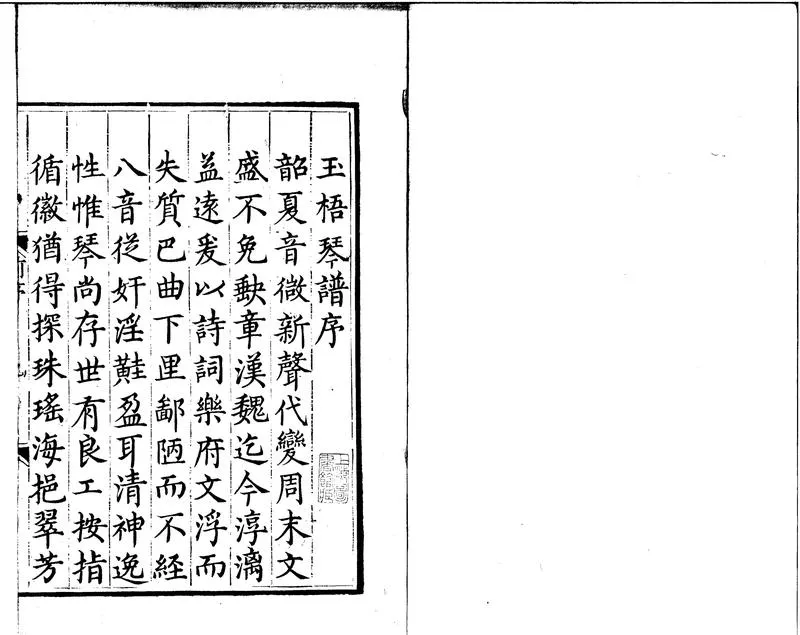 玉梧琴譜序
韶夏音微新聲代變周末文
盛不免缺章漢魏迄今淳漓
益遠爰以詩詞樂府文浮而
失質巴曲下里鄙陋而不經
八音從奸淫鼃盈耳清神逸
性惟琴尚存世有良工按指
循徽猶得探珠瑤海挹翠芳